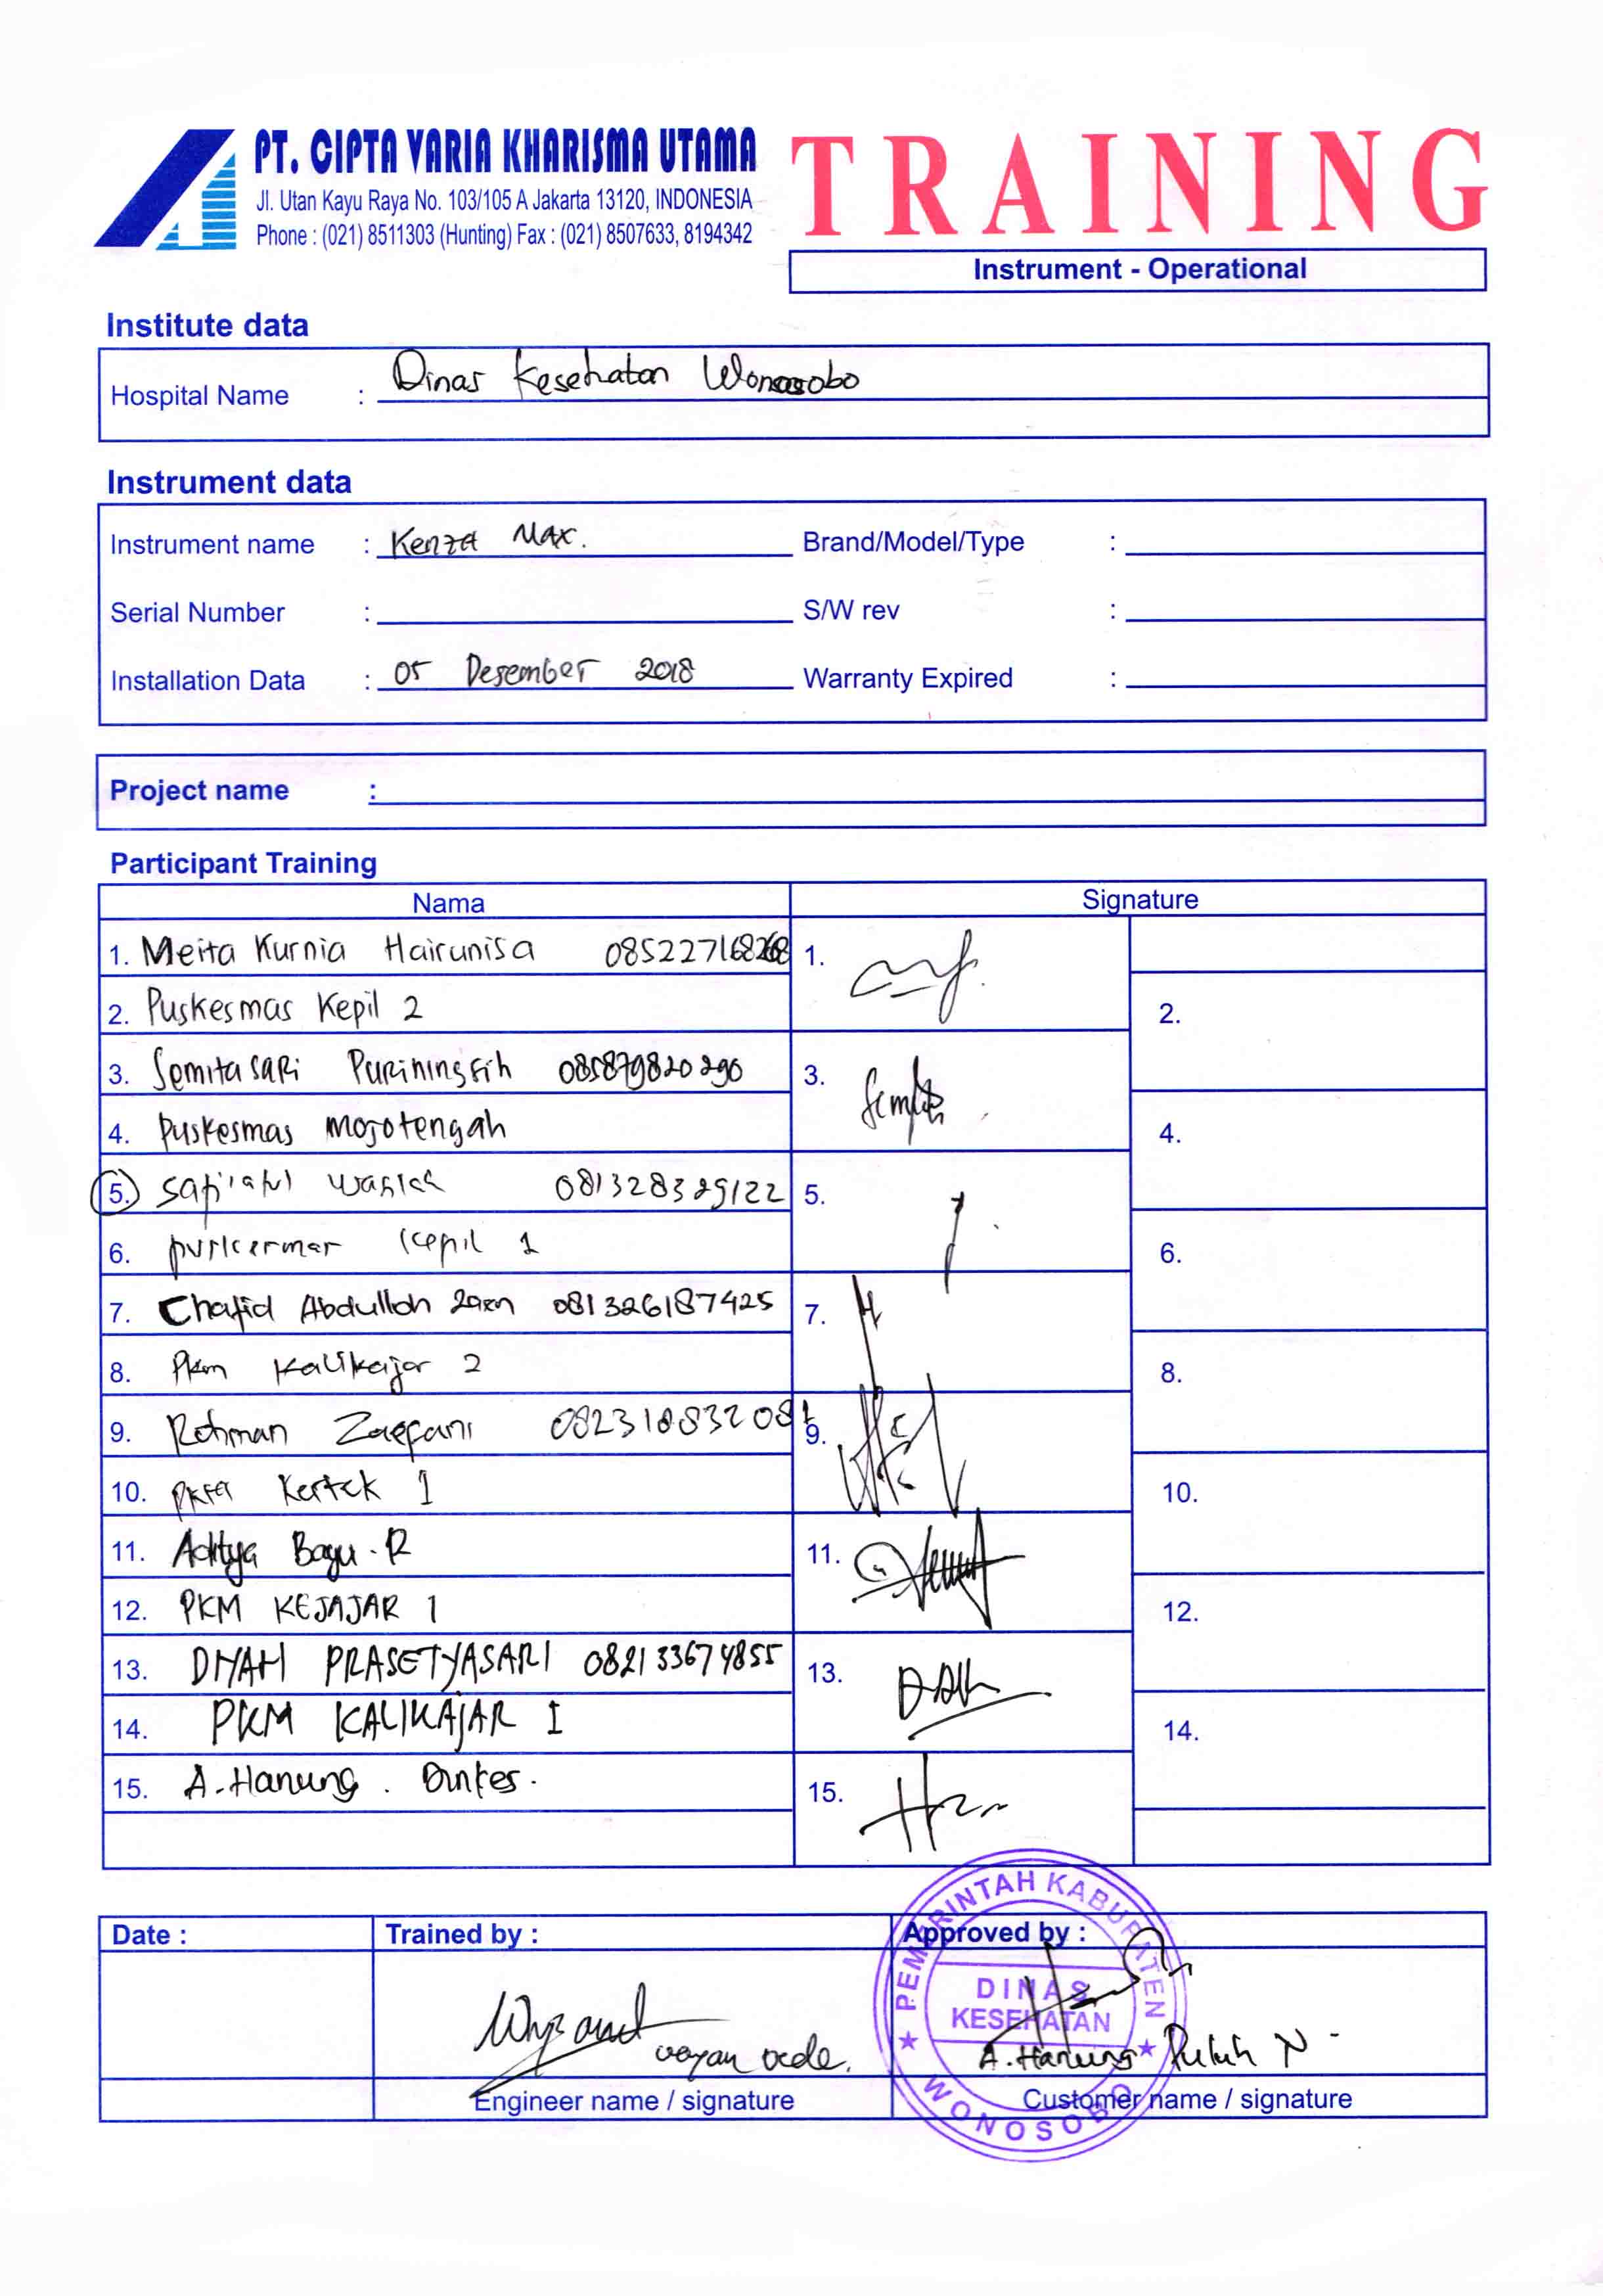 PT. CIPTA VARIA KHARISMA UTAMA
Jl. Utan Kayu Raya No. 103/105 A Jakarta 13120, INDONESIA
Phone : (021) 8511303 (Hunting) Fax : (021) 8507633, 8194342
TRAINING
Instrument - Operational
Institute data
Hospital Name : Dinas Kesehatan Wonosobo
Instrument data
Instrument name : Kenza Max. Brand/Model/Type :
Serial Number : S/W rev :
Installation Data : 05 Desember 2018 Warranty Expired :
Project name :
Participant Training
Nama Signature
1. Meita Kurnia Hairunisa 1.
2. Puskesmas Kepil 2 2.
3. Semitasari Puriningsih 085879820290 3.
4. Puskesmas mojotengah 4.
5. 081328329122 5.
6. puskesmas kepil 1 6.
7. Chafid Abdulloh 081326187425 7.
8. Pkm Kalikajar 2 8.
9. Rohman Zaefani 082310832081 9.
10. PKM Kertek 1 10.
11. Aditya Bayu. R 11.
12. PKM KEJAJAR 1 12.
13. DIYAH PRASETYASARI 082133674855 13.
14. PKM KALIKAJAR I 14.
15. A. Hanung . Dinkes. 15.
Date : Trained by : Approved by :
PEMERINTAH KABUPATEN
DINAS
KESEHATAN
WONOSOBO
wayan dede.
A. Hanung Puluh N
Engineer name / signature Customer name / signature